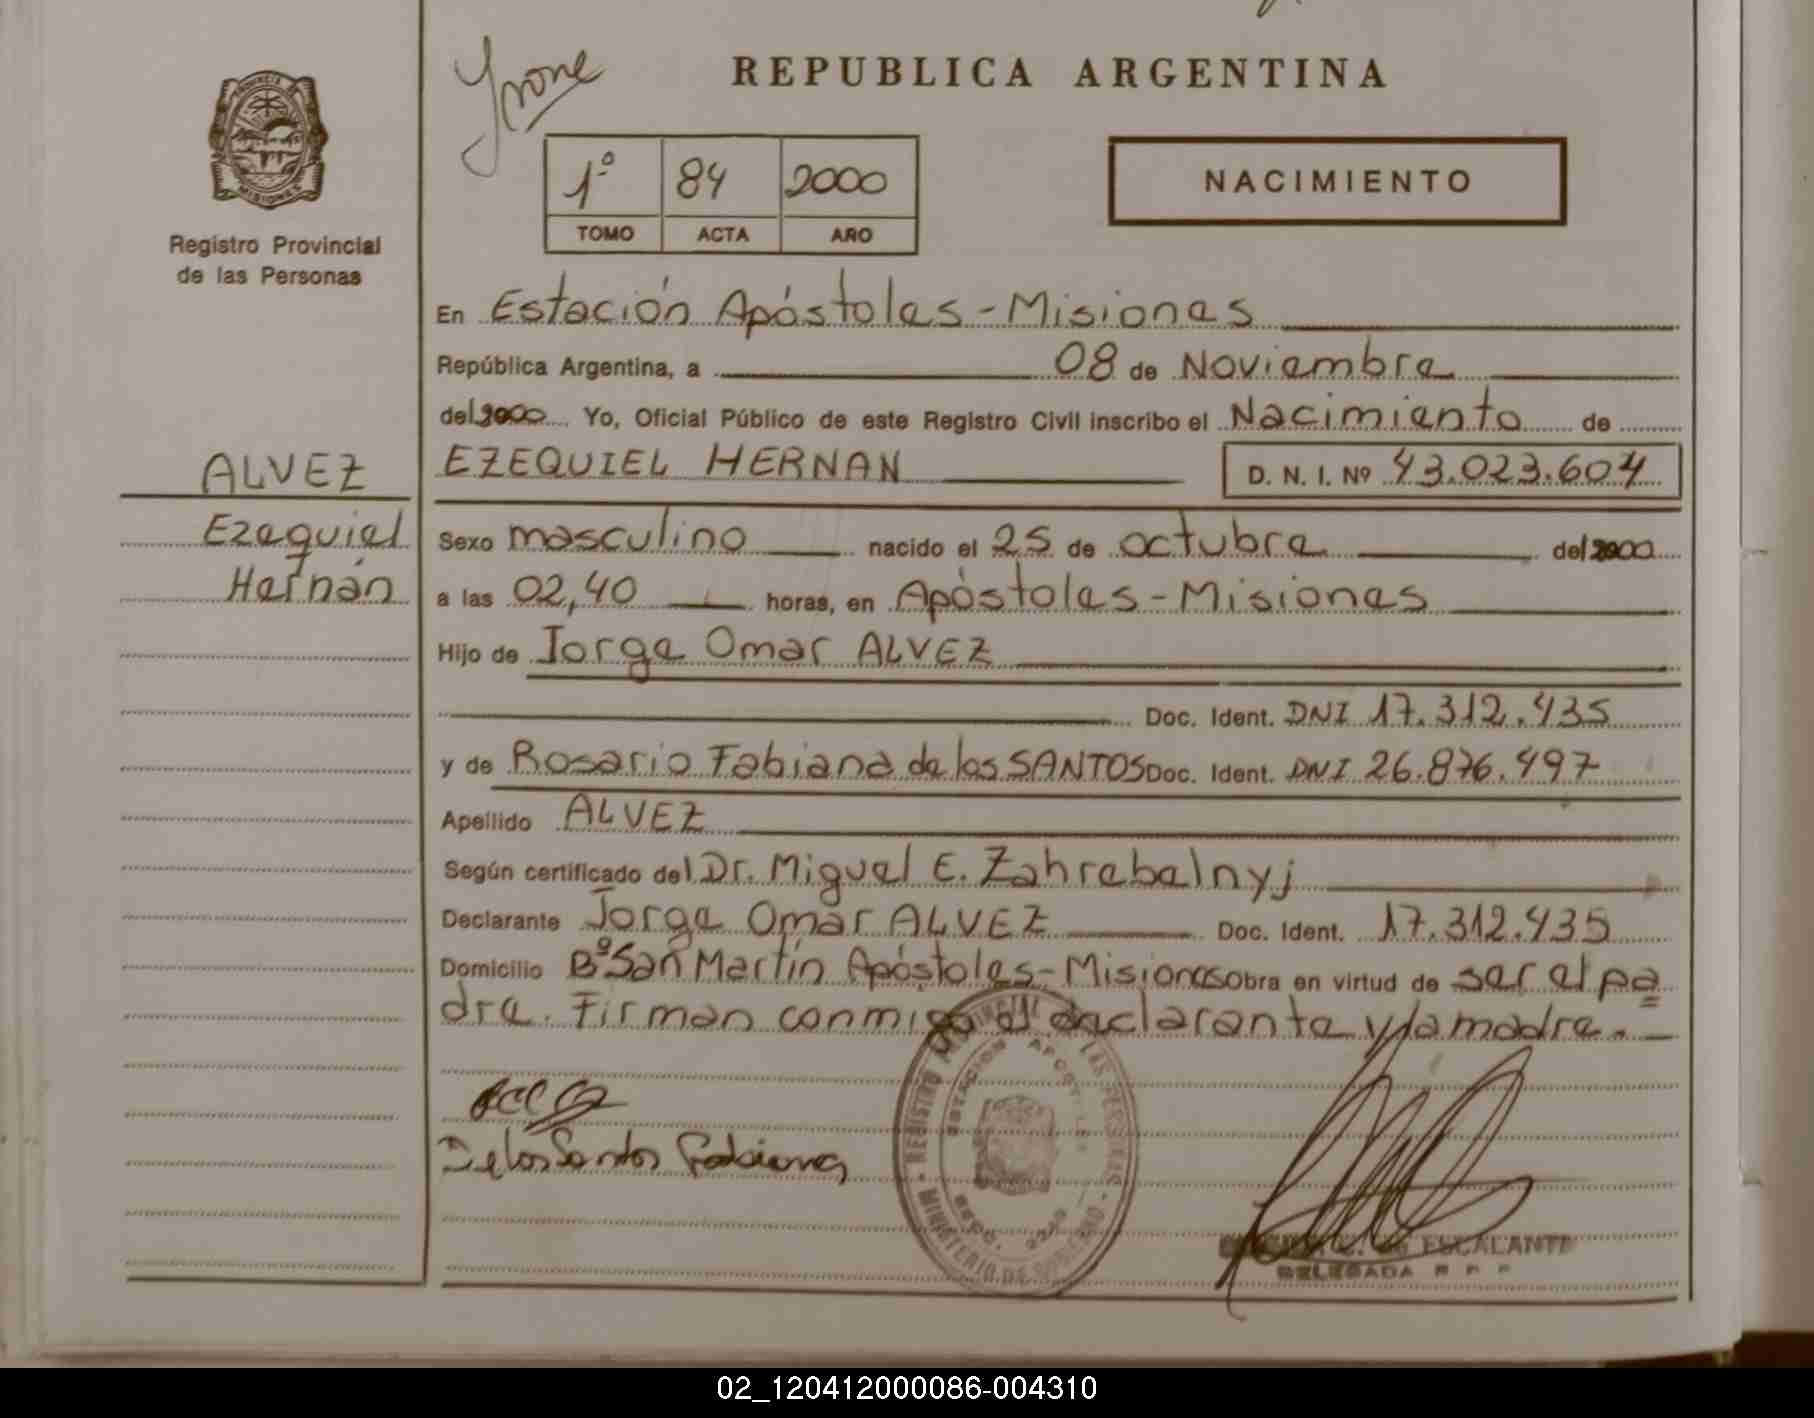 REPUBLICA ARGENTINA
PROVINCIA
MISIONES
Registro Provincial
de las Personas
1º 84 2000
TOMO ACTA AÑO
NACIMIENTO
En Estación Apóstoles - Misiones
República Argentina, a 08 de Noviembre
del 2000 Yo, Oficial Público de este Registro Civil inscribo el Nacimiento de
ALVEZ
Ezequiel
Hernán
EZEQUIEL HERNAN D. N. I. Nº 43.023.604
Sexo masculino nacido el 25 de octubre del 2000
a las 02,40 horas, en Apóstoles - Misiones
Hijo de Jorge Omar ALVEZ
Doc. Ident. DNI 17.312.435
y de Rosario Fabiana de los SANTOS Doc. Ident. DNI 26.876.497
Apellido ALVEZ
Según certificado del Dr. Miguel E. Zahrebelnyj
Declarante Jorge Omar ALVEZ Doc. Ident. 17.312.435
Domicilio Bº San Martín Apóstoles - Misiones obra en virtud de ser el pa
dre. Firman conmigo el declarante y la madre.
De los Santos Fabiana
REGISTRO PROVINCIAL DE LAS PERSONAS
ESTACION APOSTOLES
MINISTERIO DE GOBIERNO
DE ESCALANTE
DELEGADA R. P. P.
02_120412000086-004310